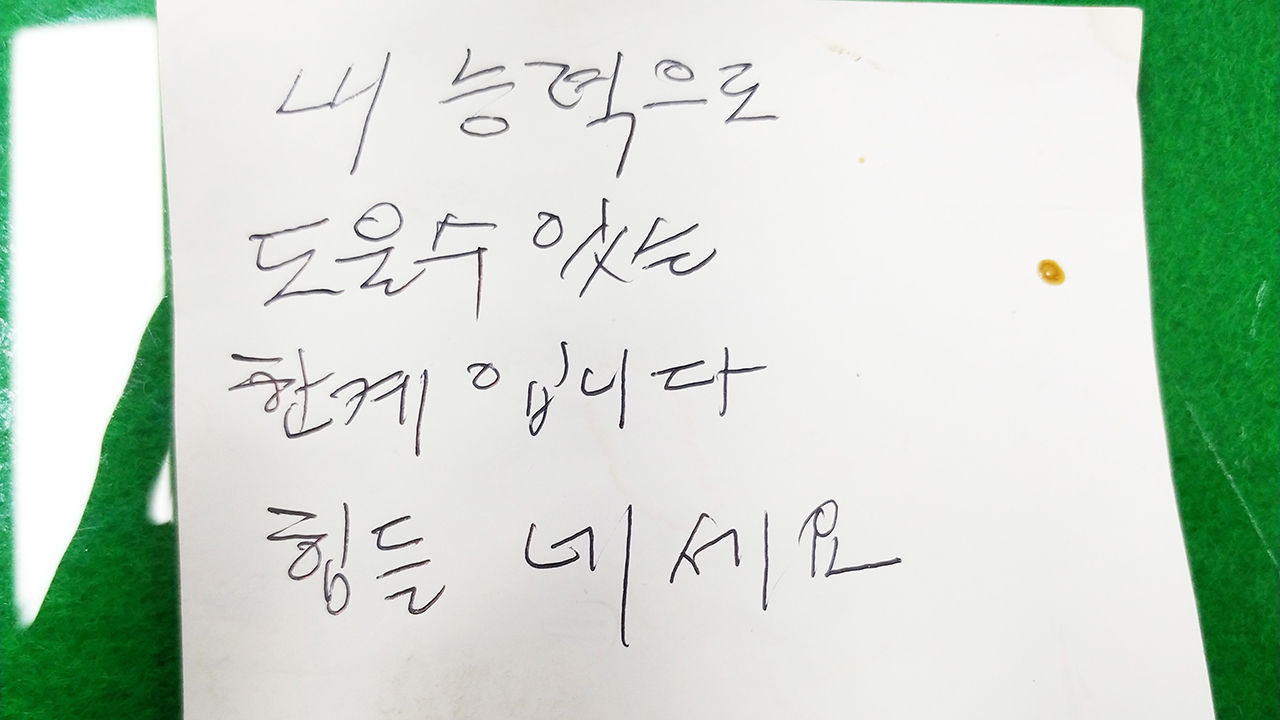 내 능력으로
도울수 있는
한계 입니다
힘들 네세요